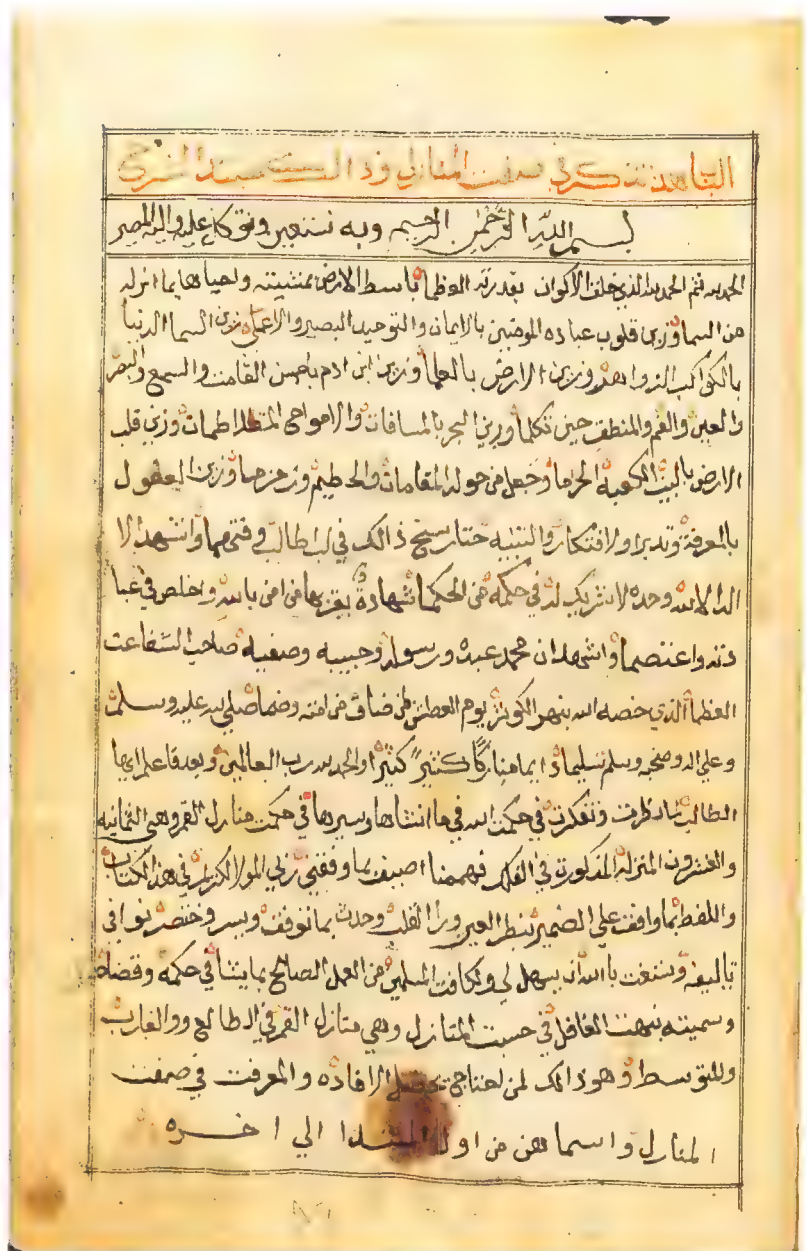 نذكر في صفت المنازل وذالك
بسم الله الرحمن الرحيم وبه نستعين ونتوكل عليه واليه المصير
الحمد لله ثم الحمد لله الذي خلق الاكوان بقدرته العظما باسط الارض بمشيته واحياها بما انزله
من السما وزين قلوب عباده المومنين بالايمان والتوحيد البصير والاعما وزين السما الدنيا
بالكواكب الزواهر وزين الارض بالعلما وزين ابن ادم باحسن القامت والسمع والبصر
والعين والفم والمنطق حين تكلما وزين البحر بالمسافات والامواج المتطلاطمات وزين قلب
الارض بالبيت الكعبه الحراما وجعل من حوله المقامات والحطيم وزمزما وزين العقول
بالمعرفة وتدبرا ولافتكار والتنبيه حتا رسخ ذالك في لب طالب وفتى مهما وانشهد الا
اله الا الله وحده لا شريك له في حكمه من الحكما شهادة يقر بها من امن بالله واخلص في عبا
دته واعتصما واشهد ان محمد عبده ورسوله وحبيبه وصفيه صاحب الشفاعت
العظما الذي خصه الله بنهر الكوثر يوم العطش لمن ضاق من امته وضما صلي الله عليه وسلم
وعلي اله وصحبه وسلم تسليما دايما مباركا كثير كثيرا والحمد لله رب العالمين وبعد فاعلم ايها
الطالب نظرت وتفكرت في حكمت الله في ما انشاها وسيرها في حكمت منازل القمر وهي الثمانيه
والعشرون المنزله المذكورة في الفلك فهممنا اصيف بما وفقني ربي المولا الكريم في هذا الكتاب
واللفظ بما وافقت علي الضمير بنظر العين ورأ القلب وحدث بما توقفت ويسر وختصر نوافي
تاليفه وستغت باالله ان يسهل لي ولكافت المسلمين من العمل الصالح بما يشا في حكمه وقضاه
وسميته بنبهت الغافل في حسبت المنازل وهي منازل القمر في الطالع ووالغارب
والمتوسط وهو ذالك لمن احتاج الافاده والمعرفت في صفت
المنازل واسماهن من اوله المبتدا الي اخره